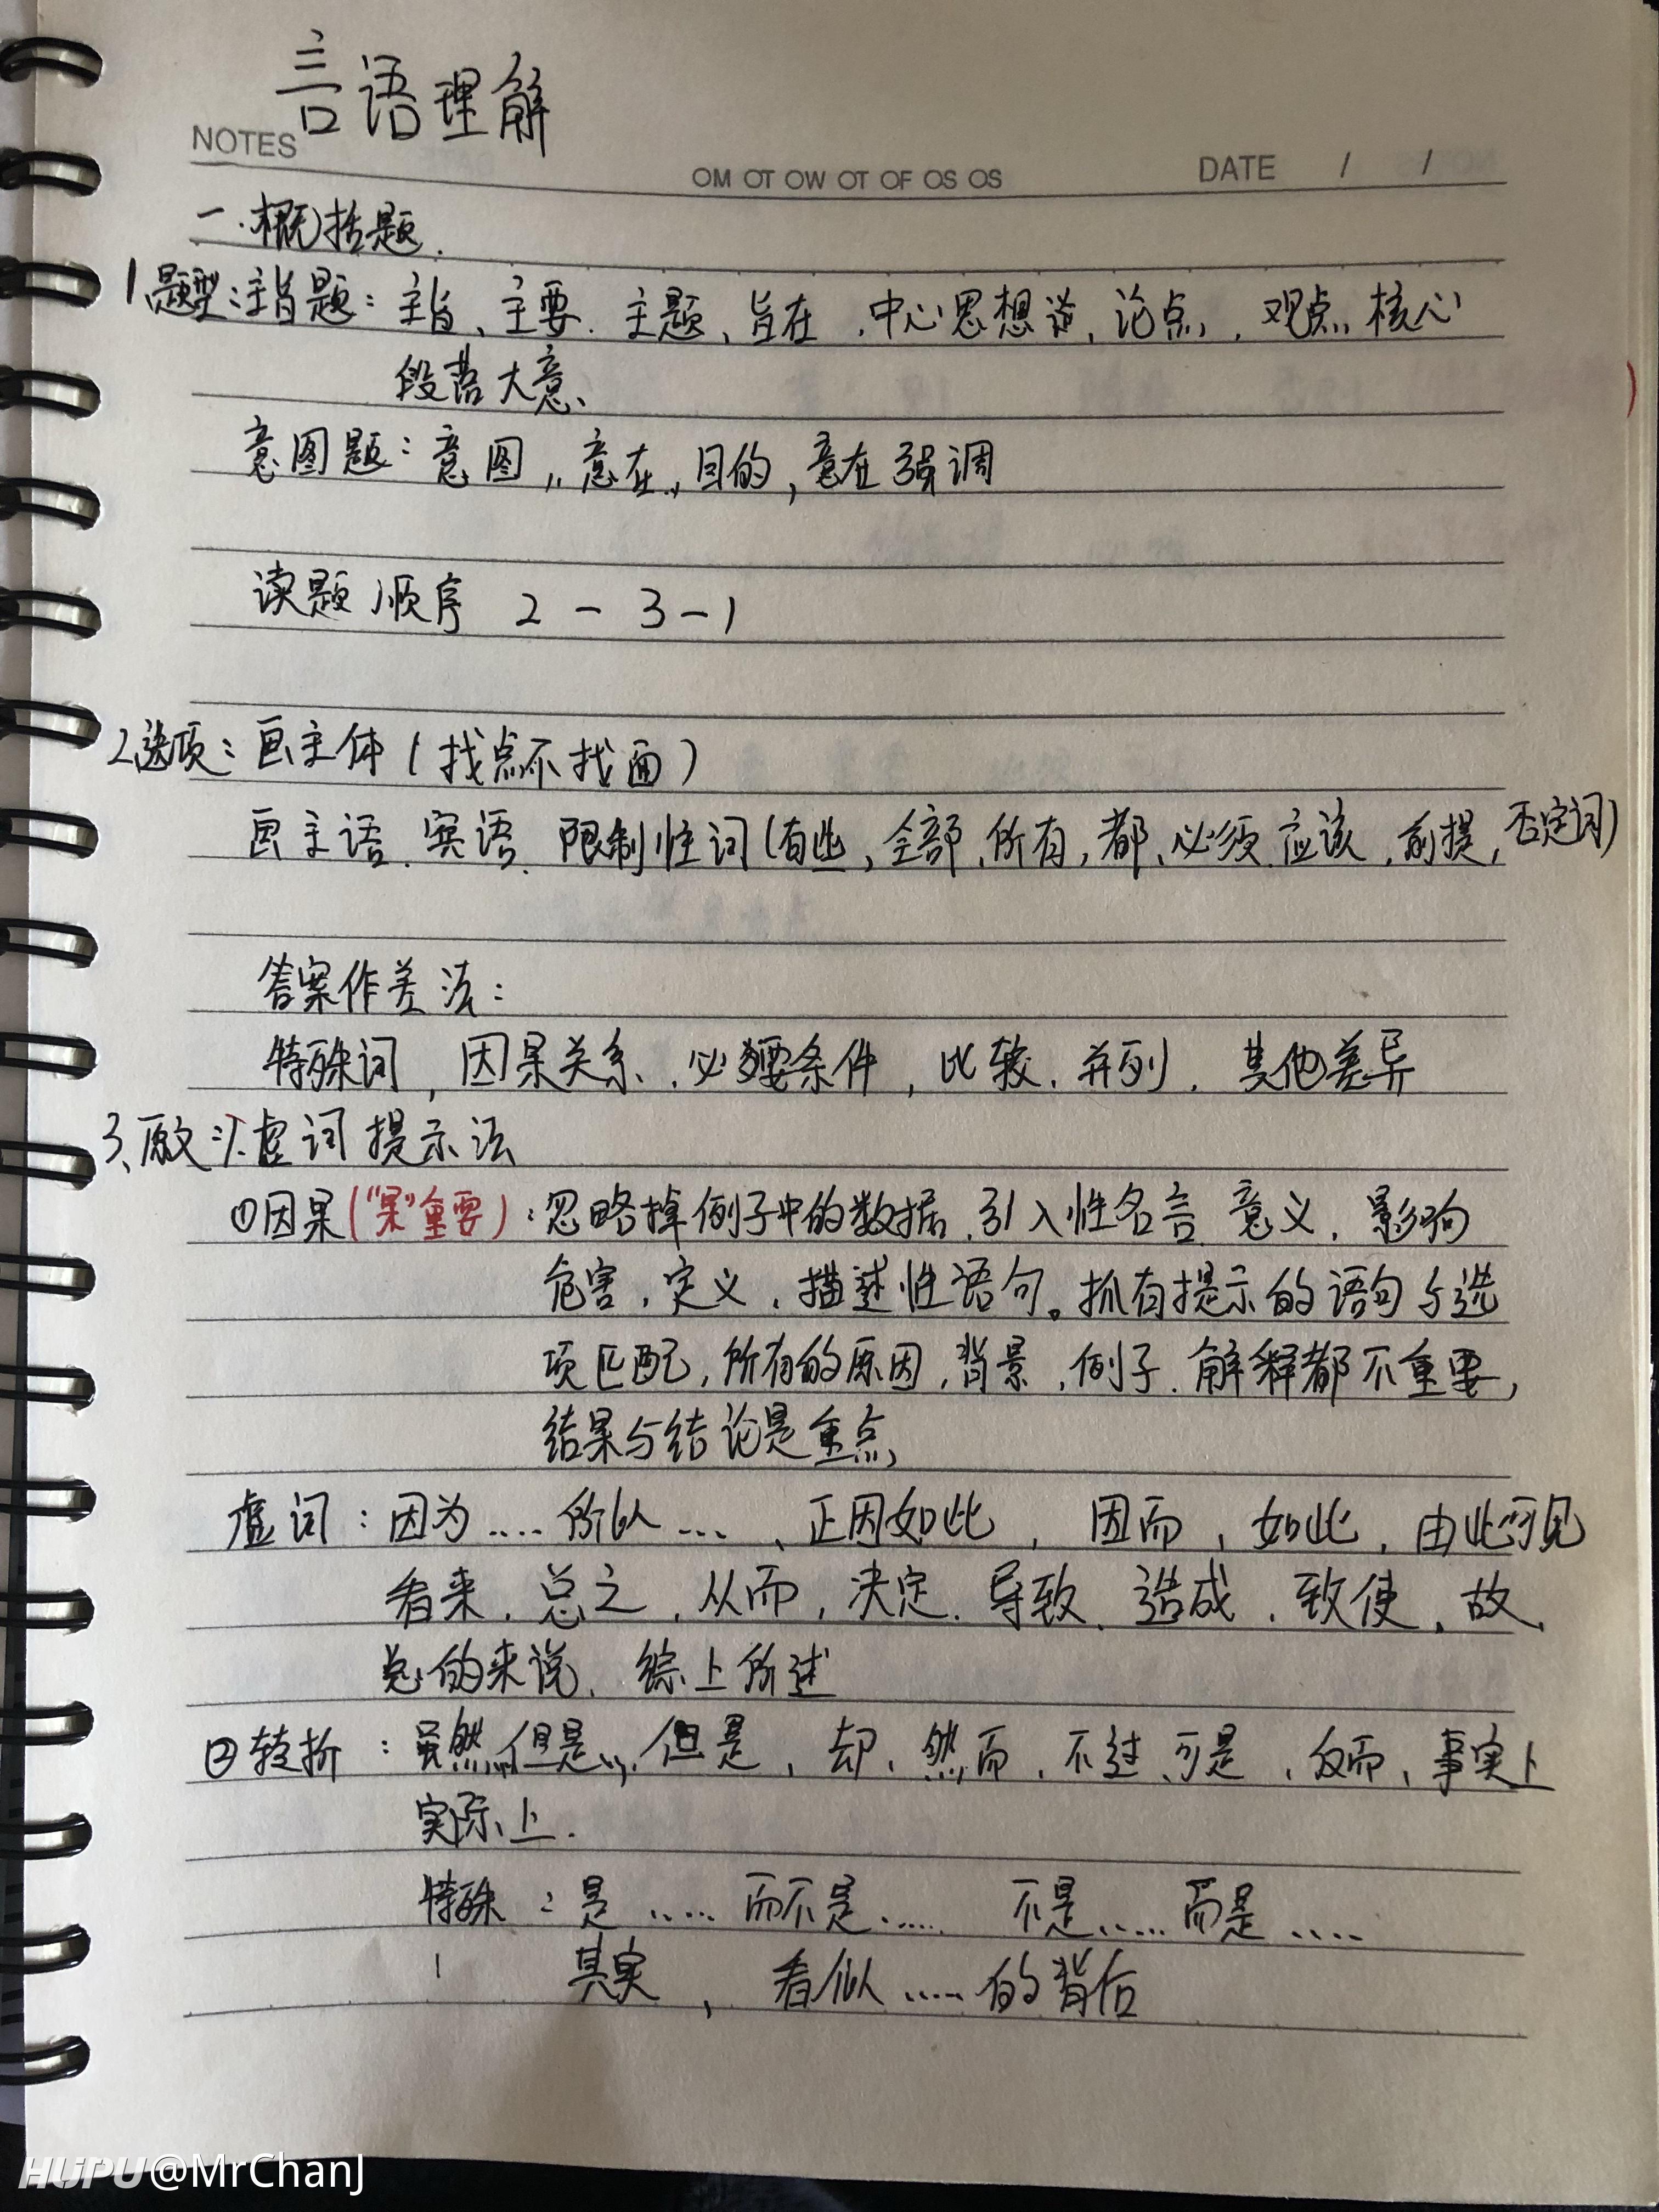 言语理解
NOTES
OM OT OW OT OF OS OS
DATE / /
一.概括题.
1.题型:主旨题:主旨、主要.主题、旨在、中心思想道,论点,、观点、核心
段落大意、
意图题:意图,,意在,,目的,意在强调
读题顺序 2-3-1
2.选项:画主体(找点不找面)
画主语、宾语、限制性词(有些,全部、所有,都、必须、应该,前提,否定词)
答案作差法:
特殊词,因果关系、必要条件,比较、并列、其他差异
3、原文:1.虚词提示法
①因果("果"重要):忽略掉例子中的数据、引入性名言、意义、影响
危害、定义、描述性语句。抓有提示的语句与选
项匹配,所有的原因,背景,例子、解释都不重要,
结果与结论是重点、
虚词:因为....所以...、正因如此,因而,如此,由此可见
看来、总之,从而,决定、导致、造成、致使、故、
总的来说、综上所述
②转折:虽然,,,但是,,,但是,却、然而、不过、可是,反而、事实上
实际上.
特殊:是.....而不是..... 不是.....而是....
其实,看似.....的背后
HUPU@MrChanJ